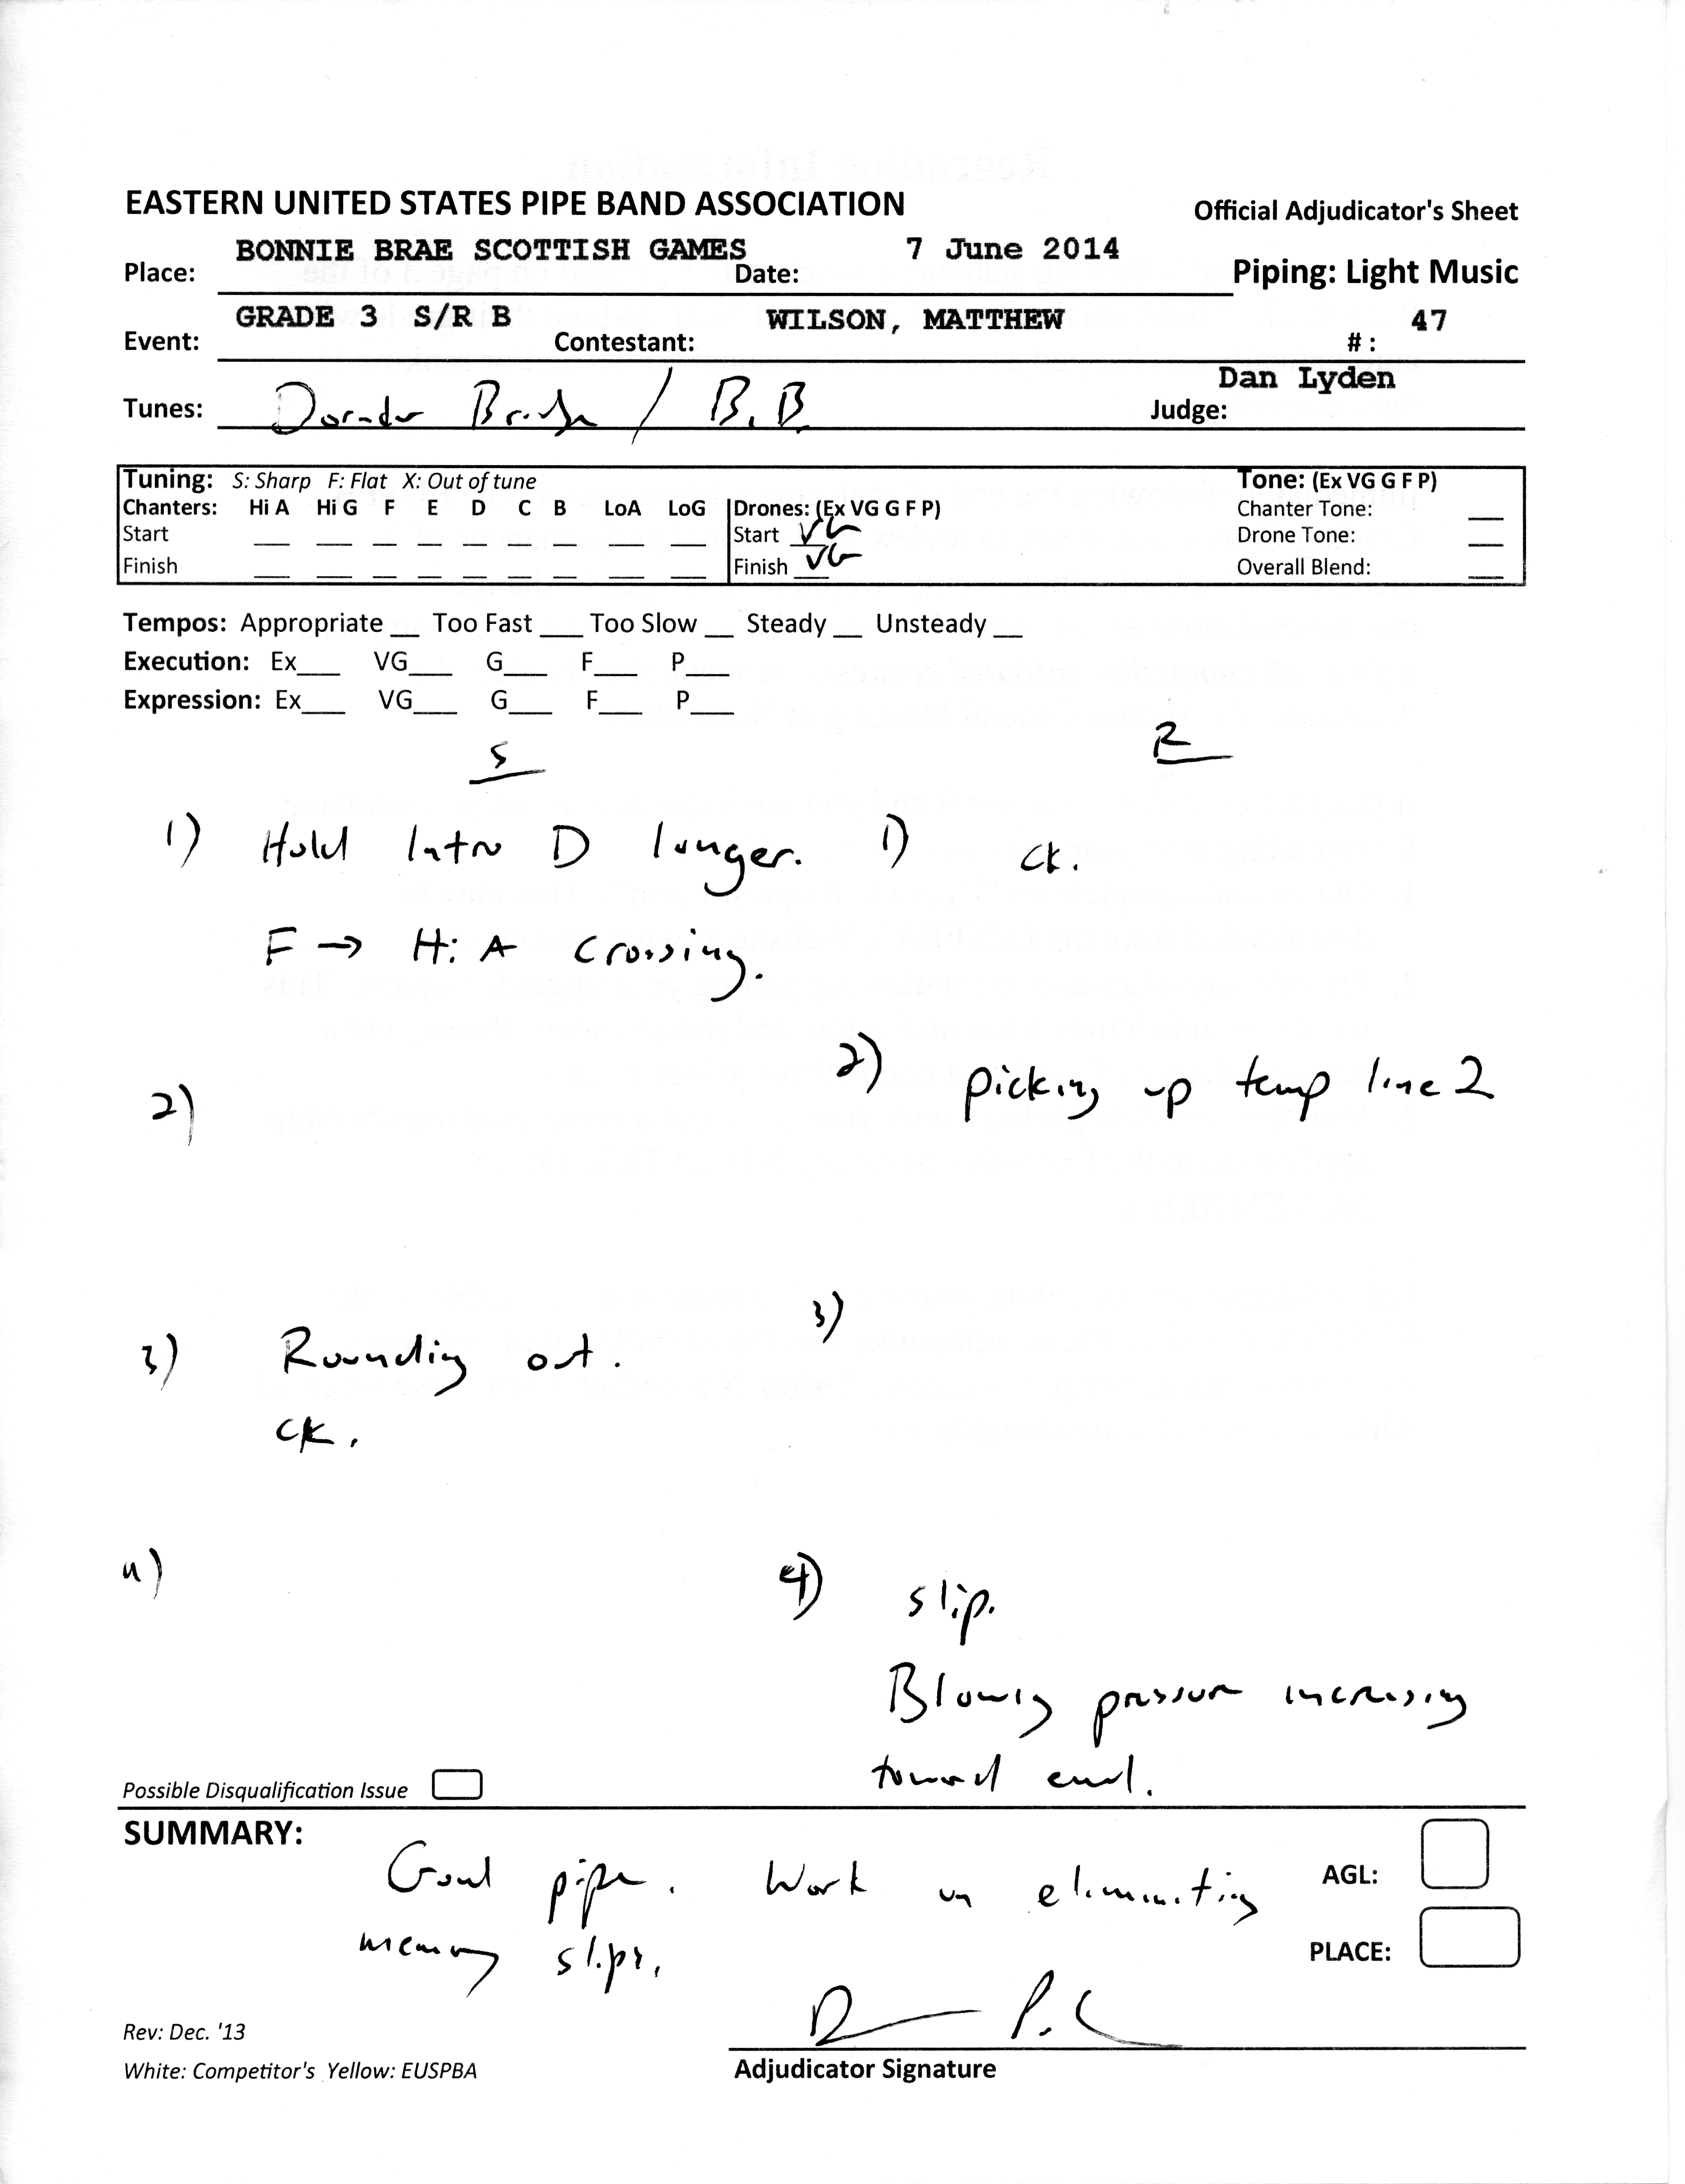 EASTERN UNITED STATES PIPE BAND ASSOCIATION Official Adjudicator's Sheet
Place: BONNIE BRAE SCOTTISH GAMES Date: 7 June 2014 Piping: Light Music
Event: GRADE 3 S/R B Contestant: WILSON, MATTHEW #: 47
Tunes: / B.B Judge: Dan Lyden
Tuning: S: Sharp F: Flat X: Out of tune Tone: (Ex VG G F P)
Chanters: Hi A Hi G F E D C B LoA LoG Drones: (Ex VG G F P) Chanter Tone: __
Start __ __ __ __ __ __ __ __ __ Start VG Drone Tone: __
Finish __ __ __ __ __ __ __ __ __ Finish VG Overall Blend: __
Tempos: Appropriate __ Too Fast ___ Too Slow __ Steady __ Unsteady __
Execution: Ex___ VG___ G___ F___ P___
Expression: Ex___ VG___ G___ F___ P___
S R
1) Hold Intro D longer. 1) ck.
F → Hi A Crossing.
2) 2) picking up temp line 2
3) Rounding out. 3)
ck.
4) 4) slip.
Blowing pressure increasing
toward end.
Possible Disqualification Issue
SUMMARY: Good pipe. Work on eliminating AGL:
memory slips. PLACE:
Rev: Dec. '13
White: Competitor's Yellow: EUSPBA Adjudicator Signature